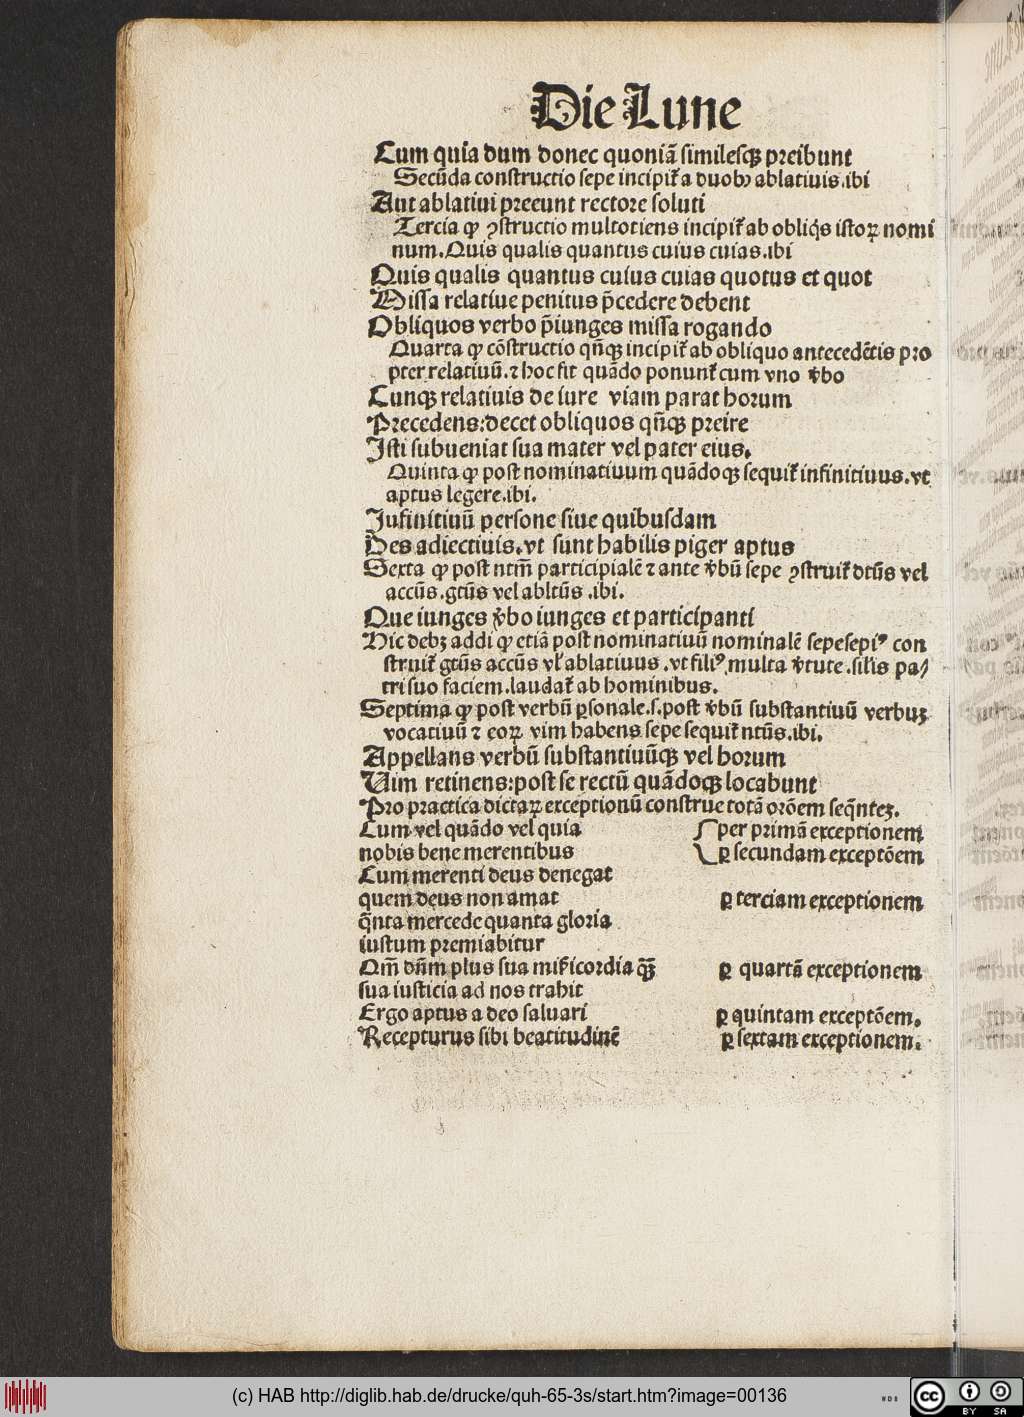 Die Lune
Cum quia dum donec quoniã similesqꝫ preibunt
Secũda constructio sepe incipit᷑ a duobꝫ ablatiuis.ibi
Aut ablatiui preeunt rectore soluti
Tercia ꝙ ꝯstructio multotiens incipit᷑ ab obliq̃s istoꝝ nomi
num.Quis qualis quantus cuius cuias.ibi
Quis qualis quantus cuius cuias quotus et quot
Missa relatiue penitus p̃cedere debent
Obliquos verbo p̃iunges missa rogando
Quarta ꝙ cõstructio qñqꝫ incipit᷑ ab obliquo antecedẽtis pro
pter relatiuũ.⁊ hoc fit quãdo ponunt᷑ cum vno v̾bo
Cunqꝫ relatiuis de iure viam parat horum
Precedens:decet obliquos qñqꝫ preire
Isti subueniat sua mater vel pater eius.
Quinta ꝙ post nominatiuum quãdoqꝫ sequit᷑ infinitiuus.vt
aptus legere.ibi.
Iufinitiuũ persone siue quibusdam
Des adiectiuis.vt sunt habilis piger aptus
Sexta ꝙ post ntm̃ participialẽ ⁊ ante v̾bũ sepe ꝯstruit᷑ dtũs vel
accũs.gtũs vel abltũs .ibi.
Que iunges v̾bo iunges et participanti
Hic debꝫ addi ꝙ etiã post nominatiuũ nominalẽ sepesepiꝰ con
struit᷑ gtũs accũs vl̾ ablatiuus .vt filiꝰ multa v̾tute.sil̾is pa⸗
tri suo faciem.laudat᷑ ab hominibus.
Septima ꝙ post verbũ ꝑsonale.s.post v̾bũ substantiuũ verbuꝫ
vocatiuũ ⁊ eoꝝ vim habens sepe sequit᷑ ntũs.ibi.
Appellans verbũ substantiuũqꝫ vel horum
Uim retinens:post se rectũ quãdoqꝫ locabunt
Pro practica dictaꝝ exceptionũ construe totã orõem seq̃nteꝫ.
Cum vel quãdo vel quia per primã exceptionem
nobis bene merentibus ꝑ secundam exceptõem
Cum merenti deus denegat
quem deus non amat ꝑ terciam exceptionem
q̃nta mercede quanta gloria
iustum premiabitur
Om̃ dñm plus sua mi᷑icordia qꝫ̃ ꝑ quartã exceptionem
sua iusticia ad nos trahit
Ergo aptus a deo saluari ꝑ quintam exceptõem.
Recepturus sibi beatitudinẽ ꝑ sextam exceptionem.
(c) HAB http://diglib.hab.de/drucke/quh-65-3s/start.htm?image=00136
WDB
cc BY SA